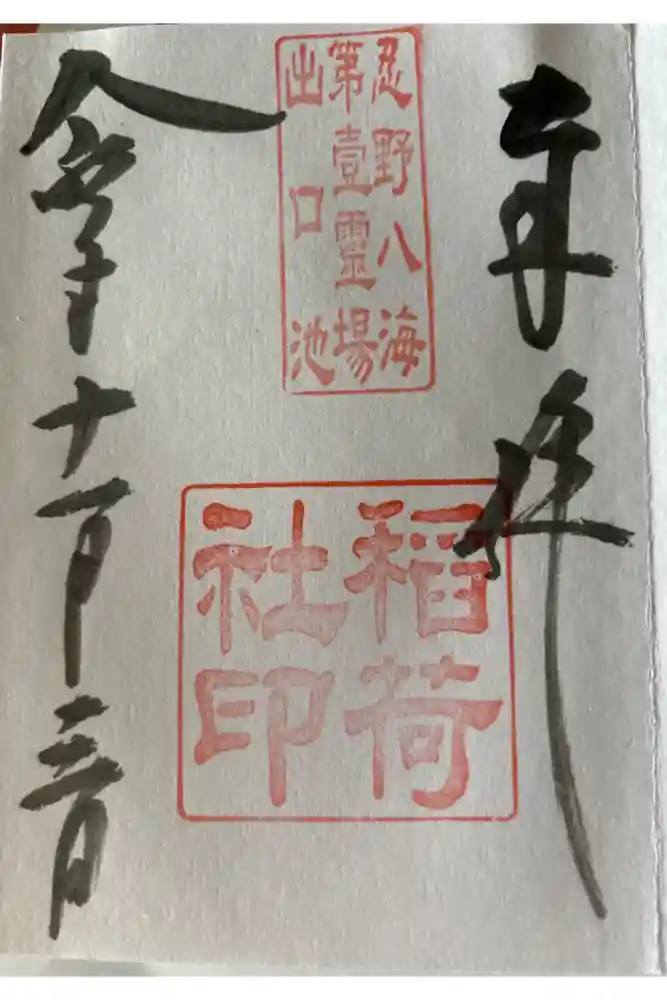 奉拝
忍野八海
第壹靈場
出口池
稲荷
社印
十一月三日